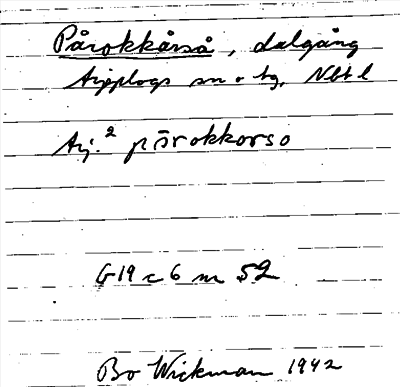 Pårokkårså, dalgång
Arjeplogs sn o tg, Nbt l
Arj.² pårokkorso
G19 c 6 m 52
Bo Wickman 1942